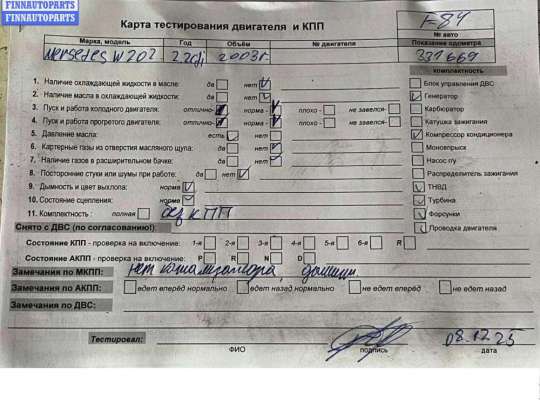 FINNAUTOPARTS
FINNAUTOPARTS
Карта тестирования двигателя и КПП
F-84
№ авто
Марка, модель Год Объём № двигателя Показание одометра
Mersedes W202 2.2cdi 2003г. 331669
комплектность
1. Наличие охлаждающей жидкости в масле: да нет
2. Наличие масла в охлаждающей жидкости: да нет
3. Пуск и работа холодного двигателя: отлично- норма - плохо - не завелся-
4. Пуск и работа прогретого двигателя: отлично- норма - плохо - не завелся-
5. Давление масла: есть нет
6. Картерные газы из отверстия масляного щупа: да нет
7. Наличие газов в расширительном бачке: да нет
8. Посторонние стуки или шумы при работе: да нет
9. Дымность и цвет выхлопа: норма
10. Состояние сцепления: норма
11. Комплектность : полная без КПП
Блок управления ДВС
Генератор
Карбюратор
Катушка зажигания
Компрессор кондиционера
Моновпрыск
Насос гту
Распределитель зажигания
ТНВД
Турбина
Форсунки
Проводка двигателя
Снято с ДВС (по согласованию!):
Состояние КПП - проверка на включение: 1-я 2-я 3-я 4-я 5-я 6-я R
Состояние АКПП - проверка на включение: P R N D
Замечания по МКПП:
Замечания по АКПП: едет вперёд нормально едет назад нормально не едет вперёд не едет назад
Замечания по ДВС:
Тестировал:
ФИО подпись дата
08.12.25